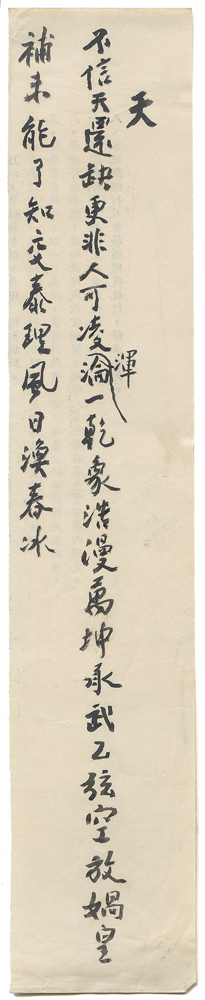 天
不信天還缺更非人可凌渾淪一乾象浩漫萬坤承武乙弦空放媧皇
補未能了知交泰理風日渙春冰